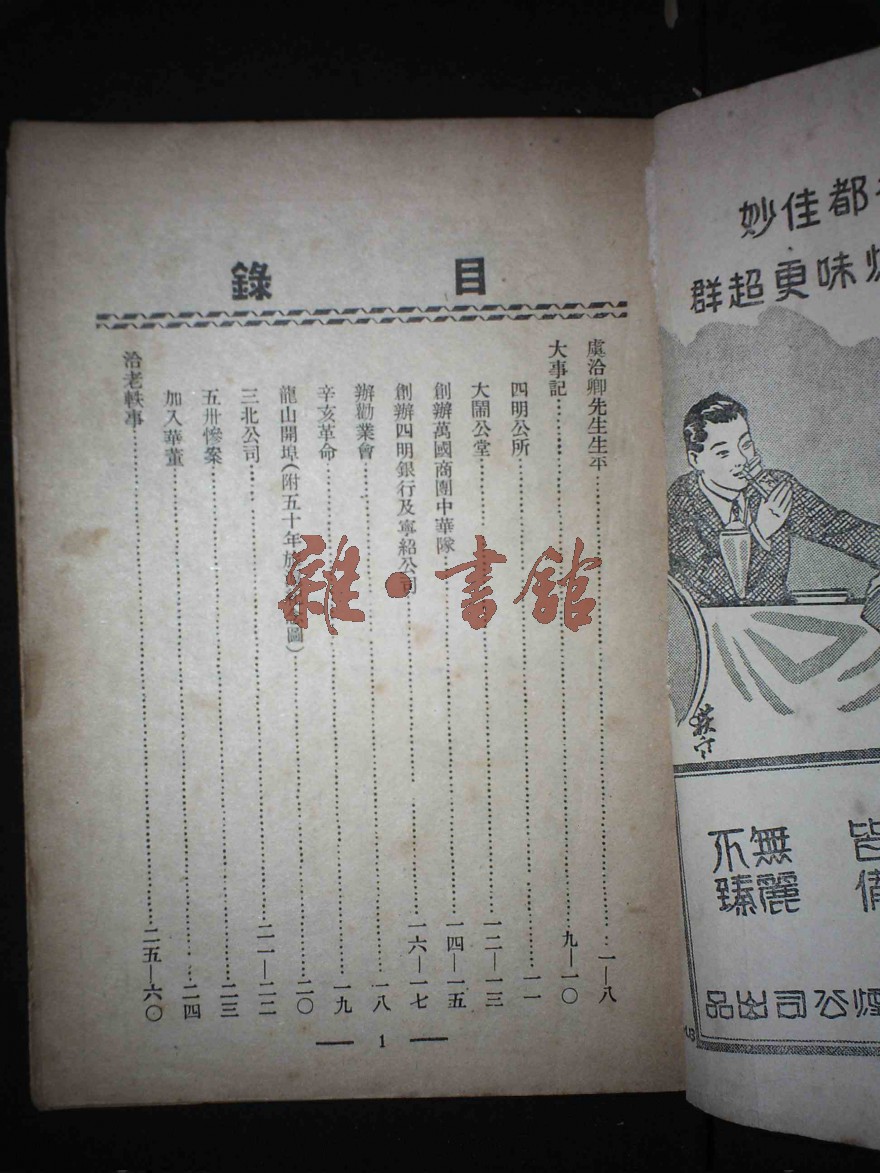 目錄
虞洽卿先生生平……一—八
大事記……九—一〇
四明公所……一一
大鬧公堂……一二—一三
創辦萬國商團中華隊……一四—一五
創辦四明銀行及寧紹公司……一六—一七
辦勸業會……一八
辛亥革命……一九
龍山開埠(附五十年旅圖)……二〇
三北公司……二一—二二
五卅慘案……二三
加入華董……二四
洽老軼事……二五—六〇
— 1 —
雜·書館
都佳妙
味更超群
皆備
無麗
不臻
煙公司出品